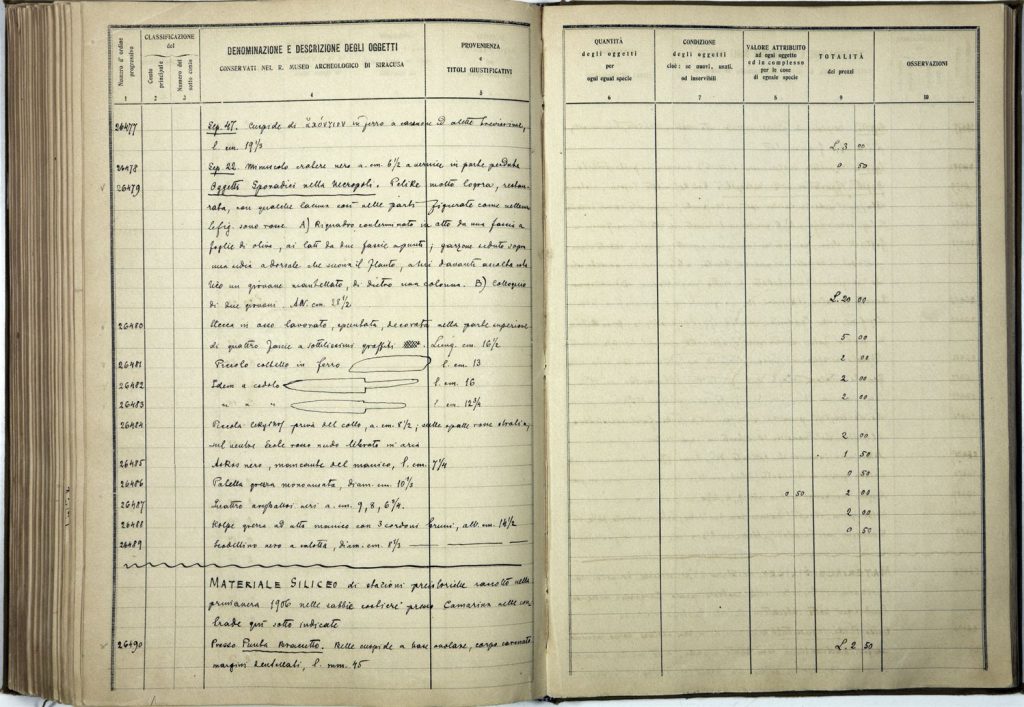 CLASSIFICAZIONE
del
Numero d'ordine
progressivo
Conto
principale
Numero del
sotto conto
DENOMINAZIONE E DESCRIZIONE DEGLI OGGETTI
CONSERVATI NEL R. MUSEO ARCHEOLOGICO DI SIRACUSA
PROVENIENZA
e
TITOLI GIUSTIFICATIVI
QUANTITÀ
degli oggetti
per
ogni egual specie
CONDIZIONE
degli oggetti
cioè: se nuovi, usati,
od inservibili
VALORE ATTRIBUITO
ad ogni oggetto
ed in complesso
per le cose
di eguale specie
TOTALITÀ
dei prezzi
OSSERVAZIONI
1 2 3 4 5 6 7 8 9 10
26477 Sep. 47. Cuspide di in ferro a cannone ed alette brevissime,
l. cm. 19 1/2 L. 3 00
26478 Sep. 22. Minuscolo cratere nero a. cm. 6 1/2 a vernice in parte perduta 0 50
26479 Oggetti Sporadici nella Necropoli. Pelike molto logora, restau-
rata, con qualche lacuna così nelle parti figurate come nelle
le fig. sono rosse. A) Riquadro conterminato in alto da una fascia a
foglie di olivo, ai lati da due fascie a punti; garzone seduto sopra
una sedia a dorsale che suona il flauto, a lui davanti ascolta
un giovane mantellato, di dietro una colonna. B) Colloquio
di due giovani. Alt. cm. 23 1/2 L. 20 00
26480 Stecca in osso lavorato, spuntata, decorata nella parte superiore
di quattro fascie a sottilissimi graffiti. Lung. cm. 16 1/2 5 00
26481 Piccolo coltello in ferro l. cm. 13 2 00
26482 Idem a codolo l. cm. 16 2 00
26483 " " " l. cm. 12 3/4 2 00
26484 Piccola priva del collo, a. cm. 8 1/2; sulle spalle rosse
sul ventre Erote rosso nudo librato in aria 2 00
26485 Askos nero, mancante del manico, l. cm. 7 1/4 1 50
26486 Patella grezza monoansata, diam. cm. 10 1/2 0 50
26487 Quattro neri a. cm. 9, 8, 6 3/4. 0 50 2 00
26488 Kolpe grezza ad alto manico con 3 cordoni, alt. cm. 14 1/2 2 00
26489 Scodellino nero a calotta, diam. cm. 8 1/2 0 50
MATERIALE SILICEO di stazioni preistoriche raccolto nella
primavera 1906 nelle sabbie costiere presso Camarina nelle con-
trade quì sotto indicate
26490 Presso Punta Braccetto. Belle cuspide a base carpo carenato
margini dentellati, l. mm. 45 L. 2 50